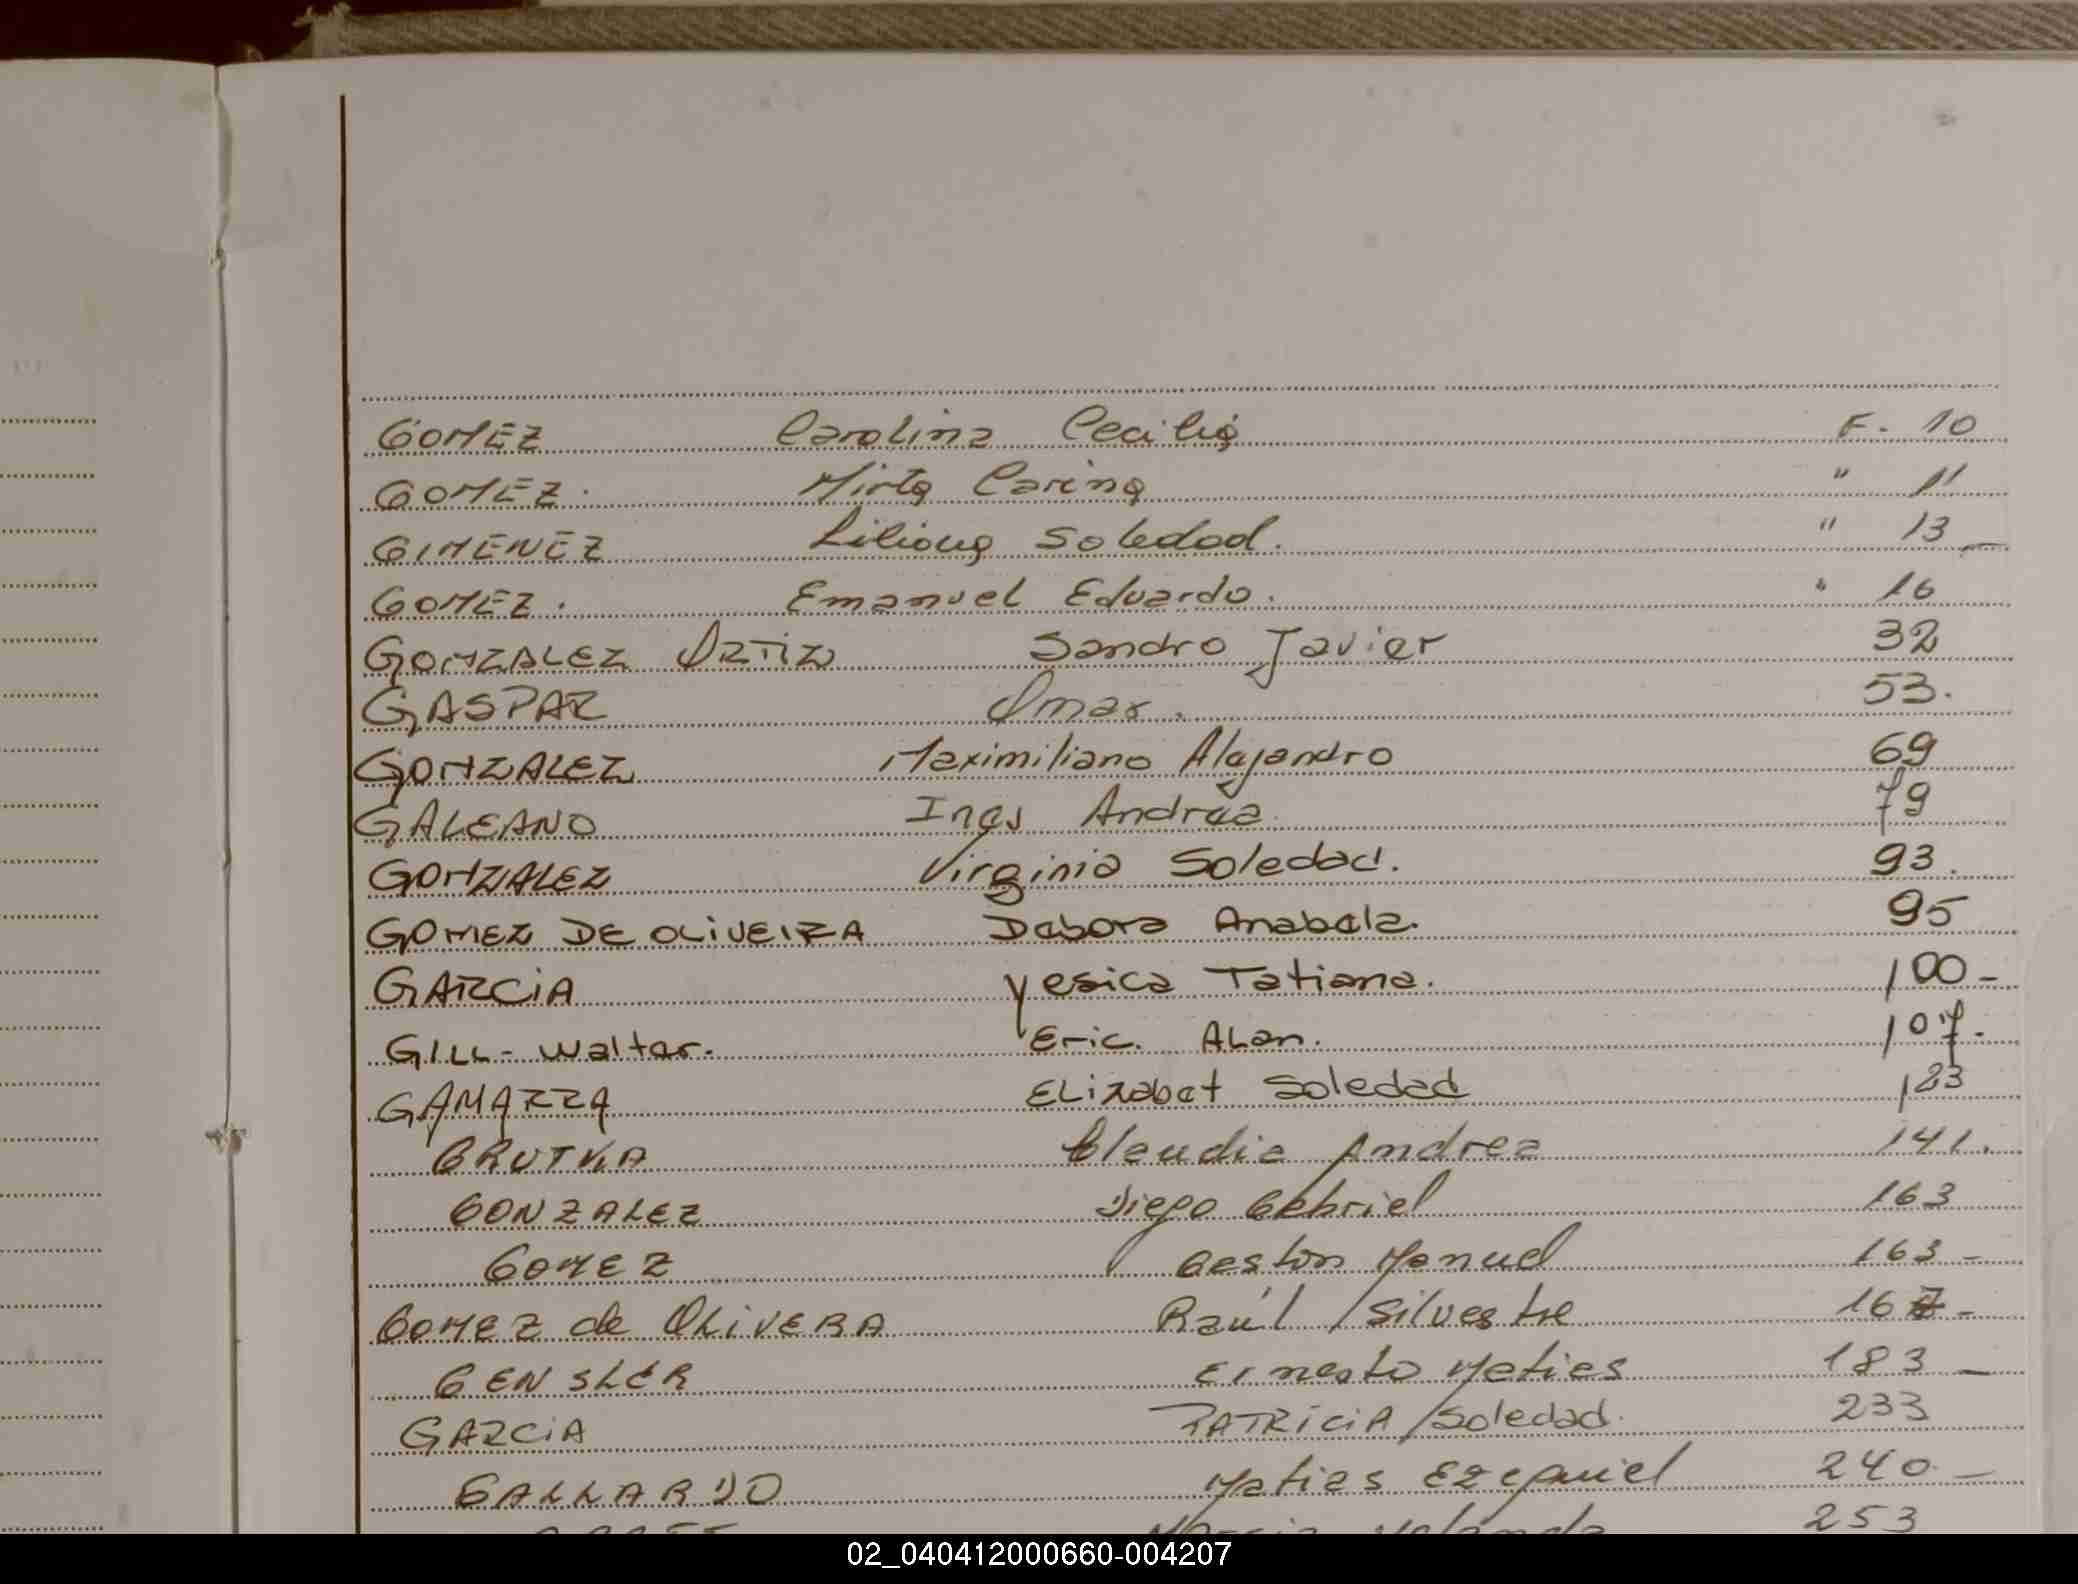 GOMEZ Carolina Cecilia F. 10
GOMEZ. Mirta Carina " 11
GIMENEZ Liliana Soledad. " 13 -
GOMEZ. Emanuel Eduardo. " 16
GONZALEZ ORTIZ Sandro Javier 32
GASPAR Omar. 53.
GONZALEZ Maximiliano Alejandro 69
GALEANO Ines Andrea 79
GONZALEZ Virginia Soledad. 93.
GOMEZ DE OLIVEIRA Debora Anabela. 95
GARCIA Yesica Tatiana. 100-
GILL - Walter. Eric. ALan. 107.
GAMARRA ELizabet Soledad 123
GRUTKA Claudia Andrea 141.
GONZALEZ Diego Gabriel 163
GOMEZ Gaston Manuel 163 -
GOMEZ de OLIVERA Raúl Silvestre 167 -
GENSLER Ernesto Matias 183 -
GARCIA PATRICIA Soledad. 233
GALLARDO Matias Ezequiel 240 -
253
02_040412000660-004207